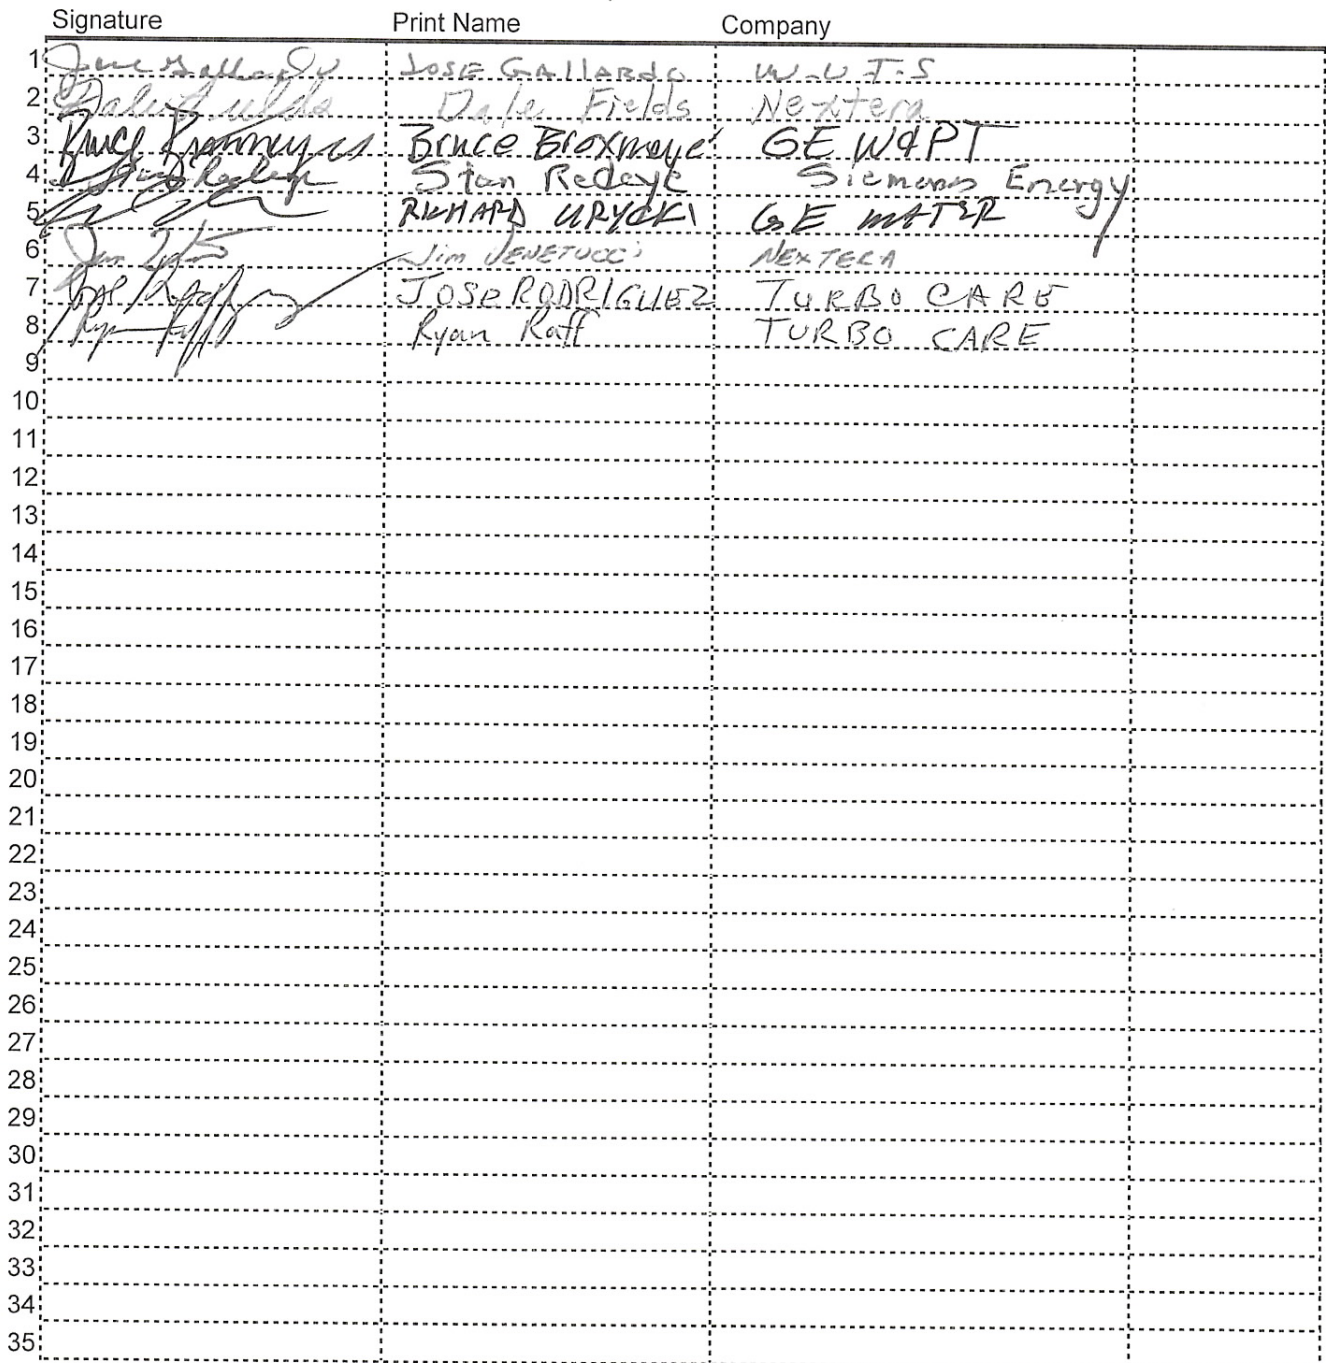 Signature Print Name Company
1 Jose Gallardo JOSE GALLARDO W.U.T.S
2 Dale Fields Dale Fields Nextera
3 Bruce Broxmeyer Bruce Broxmeye GE W&PT
4 Stan Redeye Stan Redeye Siemens Energy
5 RICHARD URYCKI GE
6 Jim VENETUCCI NEXTERA
7 JOSE RODRIGUEZ TURBO CARE
8 Ryan Raff Ryan Raff TURBO CARE
9
10
11
12
13
14
15
16
17
18
19
20
21
22
23
24
25
26
27
28
29
30
31
32
33
34
35